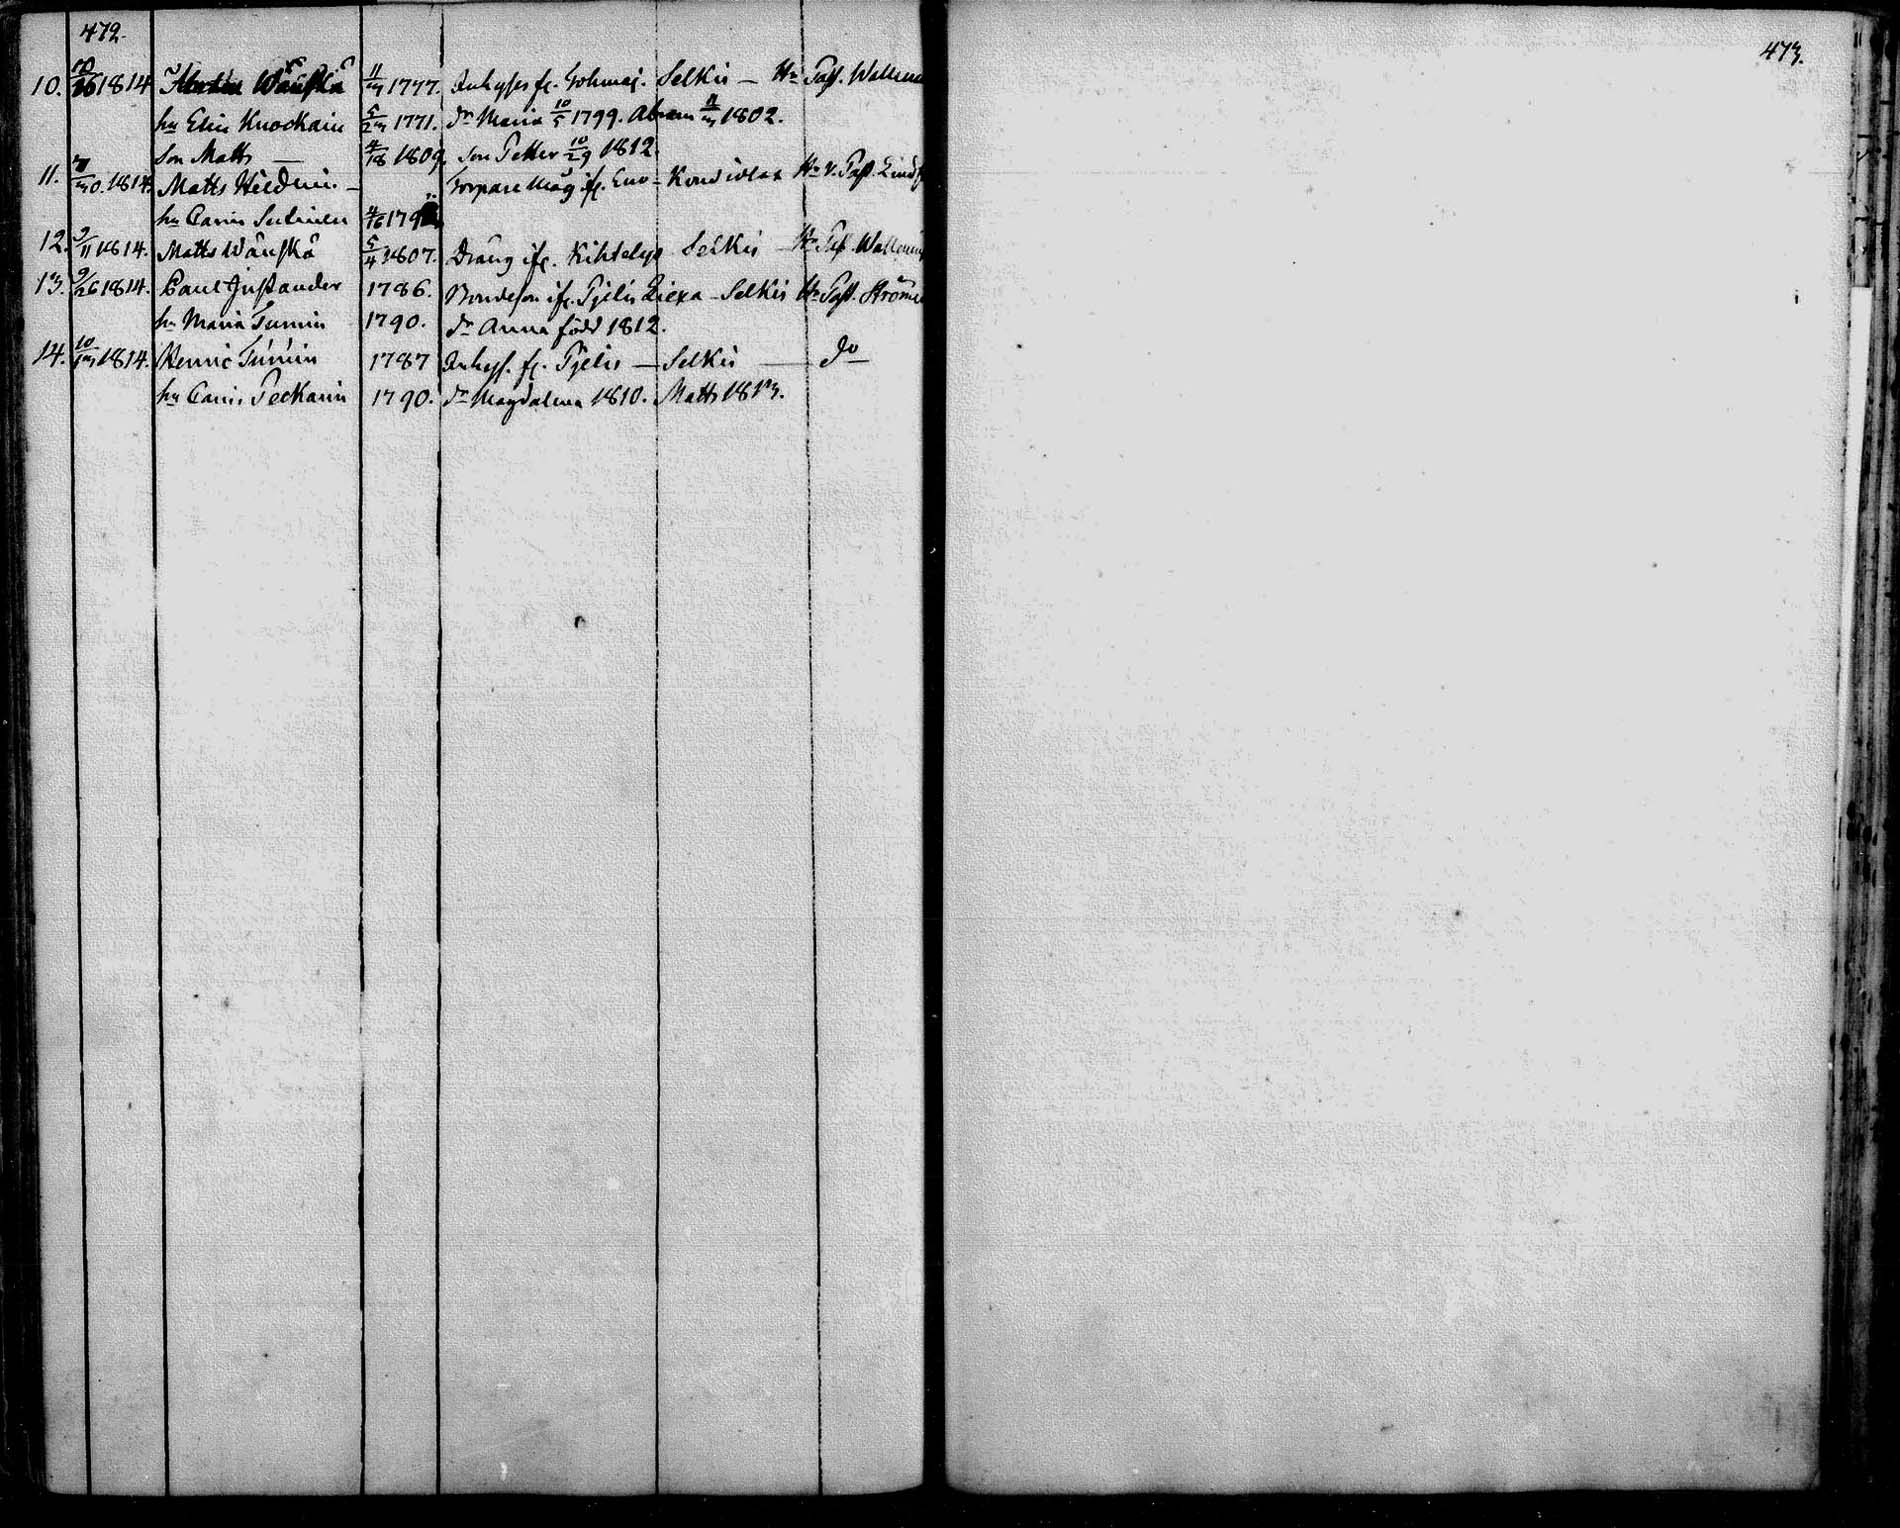 472.
10. 10/26 1814 Wänskä 11/3 1777. Inhyses fr. Tohmaj. Selkis — Hr Past. Wallenu
hu Elin Knockain 5/23 1771. dr Maria 10/5 1799. Abram 1802.
son Matts — 4/18 1809 son Petter 10/29 1812
11. 30. 1814. Matts — Torpare Måg ifr. Eno - Kondivlax Hr V. Past. Lind
hu Carin 4/16 179
12. 9/11 1814. Matts Wänskä 5/4 1807. Dräng ifr. Kihtelys Selkis — Hr Past. Wallenu
13. 9/26 1814. Paul Justander 1786. Bondeson ifr. Pjelis Liexa - Selkis Hr Past. Ströme
hu Maria Turuin 1790. dr Anna född 1812.
14. 10/13 1814. Henric Turuin 1787 Inhys. fr. Pjelis — Selkis — do
hu Carin Peckarin 1790. dr Magdalena 1810. Matts 1813.
473.